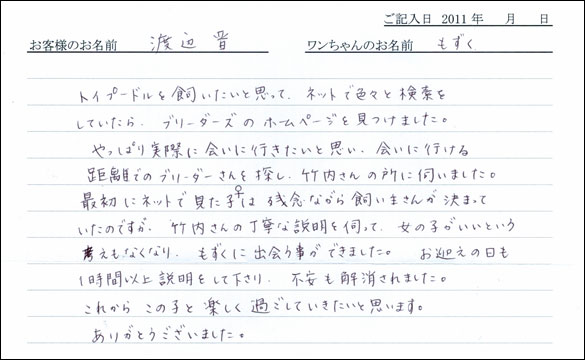 ご記入日 2011年 月 日
お客様のお名前 渡辺晋 ワンちゃんのお名前 もずく
トイプードルを飼いたいと思って、ネットで色々と検索を
していたら、ブリーダーズのホームページを見つけました。
やっぱり実際に会いに行きたいと思い、会いに行ける
距離でのブリーダーさんを探し、竹内さんの所に伺いました。
最初にネットで見た子♀は残念ながら飼い主さんが決まって
いたのですが、竹内さんの丁寧な説明を伺って、女の子がいいという
考えもなくなり、もずくに出会う事ができました。 お迎えの日も
1時間以上説明をして下さり、不安も解消されました。
これからこの子と楽しく過ごしていきたいと思います。
ありがとうございました。